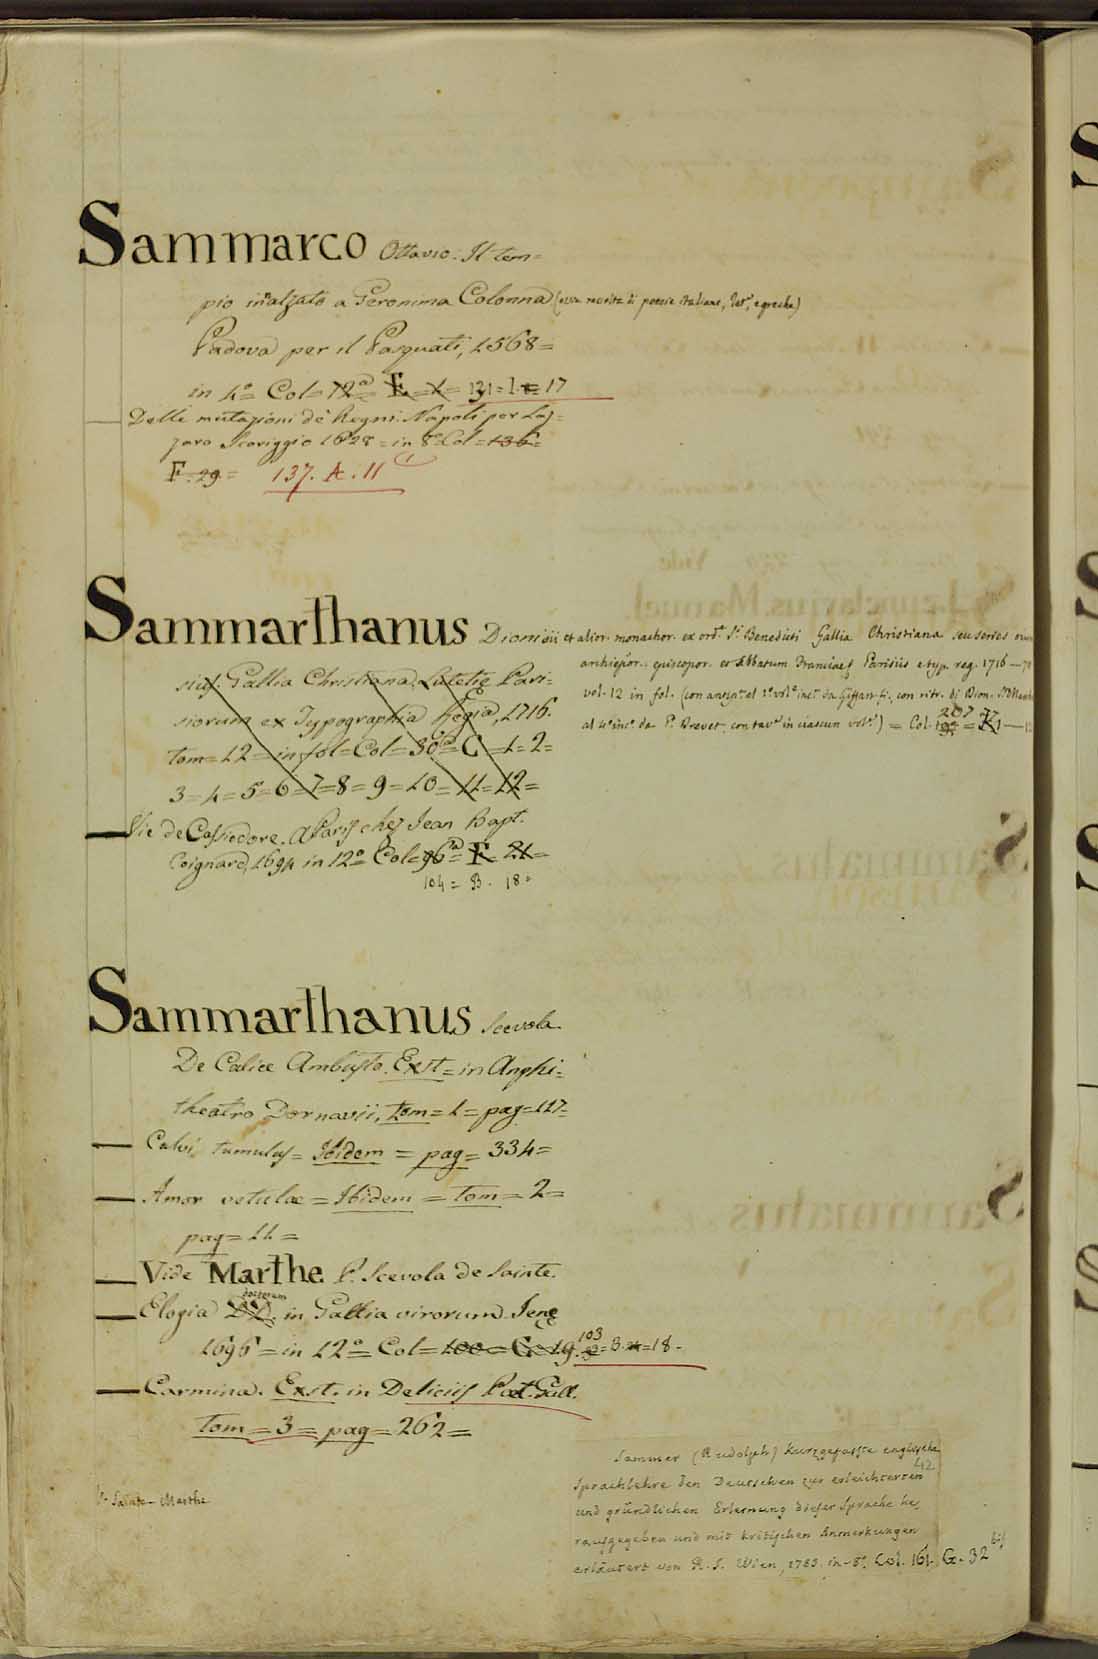 Sammarco Ottavio. Il tem=
pio in'alzato a Geronima Colonna (
di poesie italiane, lat.e, e greche)
Padova per il Pasquati, 1568=
in 4.o Col= 72.a= E= 1= 131= 17
Delle mutazioni de' Regni. Napoli per Laz=
zaro Scoriggio 1628= in 8.o Col= 136=
F. 29= 137. A. 11
Sammarthanus Dionisii et alior. monachor. ex ord.e S.i Benedicti Gallia Christiana seu series
archiepor. episcopor. et Abbatum Franciae Parisiis e typ. reg. 1716 —
vol. 12 in fol.
= Col. 207 = K 1 —
sius. Gallia Christiana. Lutetie Pari=
siorum ex Typographia Regia, 1716.
tom= 12= in fol= Col= 30.a= C= 1= 2=
3= 4= 5= 6= 7= 8= 9= 10= 11= 12=
Vie de Cassiodore. A Paris chez Jean Bapt.
Coignard, 1694 in 12.o Col= 96.a= F= 21=
104= B. 18=
Sammarthanus Scevola.
De Calice Ambusto. Exst= in Amphi=
theatro Dornavii, tom= 1= pag= 117=
Calvi tumulus= Ibidem= pag= 334=
Amor vetulae= Ibidem= tom= 2=
pag= 11=
Vide Marthe P. Scevola de Sainte.
doctorum
Elogia DD. in Gallia virorum. Jene
1696= in 12.o= Col= 100= G= 19. 103= B. = 18.
Carmina. Exst. in Deliciis Poet. Gall.
tom= 3= pag= 262=
V. Sainte-Marthe
Sammer (Rudolph) kurzgefasste englische
Sprachlehre den Deutschen zur erleichterten
und gründlichen Erlernung dieser Sprache he,
rausgegeben und mit kritischen Anmerkungen
erläutert von R. S. Wien, 1783. in-8.o Col. 161. G. 32 bis